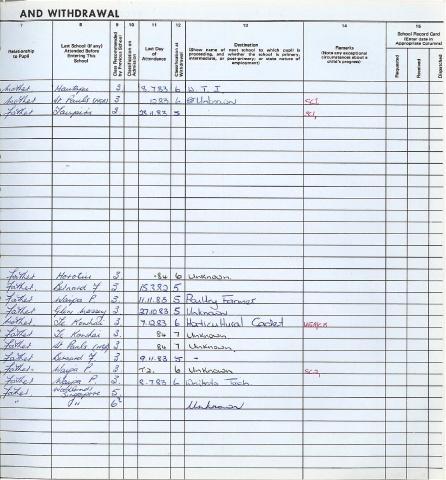 AND WITHDRAWAL
7 8 9 10 11 12 13 14 15
Relationship to Pupil
Last School (if any) Attended Before Entering This School
Class Recommended by Previous School
Classification on Admission
Last Day of Attendance
Classification at Withdrawal
Destination
(Show name of next school to which pupil is proceeding, and whether the school is primary, intermediate, or post-primary; or state nature of employment)
Remarks
(Note any exceptional circumstances about a child's progress)
School Record Card
(Enter date in Appropriate Columns)
Requested
Received
Dispatched
Mother 3 8.7.83 6 W.T.I
Mother St Pauls 3 10.83 6 Unknown
Father 3 23.11.83 5
Father Horotiu 3 .84 6 Unknown
Father Bernard F 3 15.3.82 5
Father Waipa P. 3 11.11.83 5 Poultry Farmer
Father Glen Massey 3 27.10.83 5 Unknown
Te Kowhai 3 7.12.83 6 Horticultural Cadet
Father Te Kowhai 3 84 7 Unknown
Father St Pauls 3 84 7 Unknown
Father Bernard F 3 9.11.83 5 -
Father Waipa P 3 6 Unknown
Father Waipa P. 3 8.7.83 6 Waikato Tech
Father Singapore 5
" " 6 Unknown